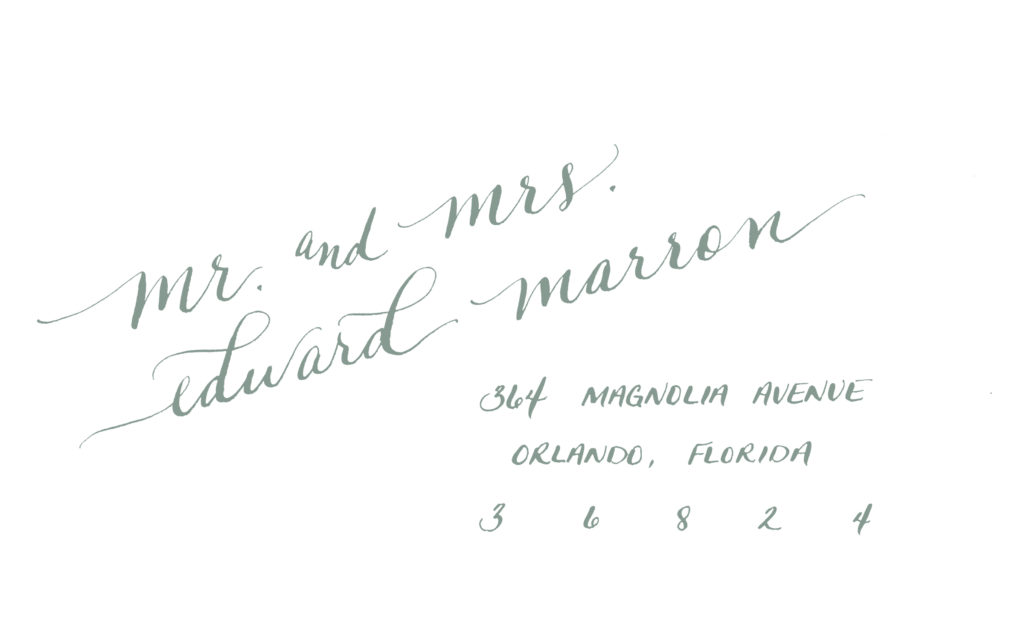 mr. and mrs.
edward marron
364 MAGNOLIA AVENUE
ORLANDO, FLORIDA
3 6 8 2 4